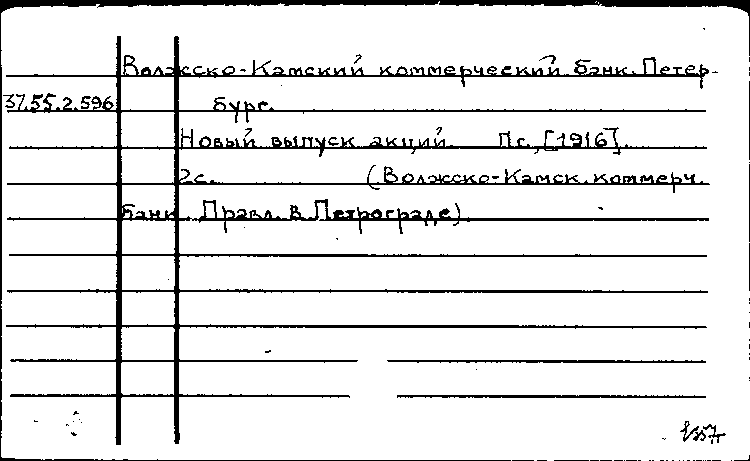 Волжско-Камский коммерческий банк. Петер-
37.55.2.596 бург.
Новый выпуск акций. Пг., [1916].
2с. (Волжско-Камск. коммерч.
банк. Правл. в Петрограде).